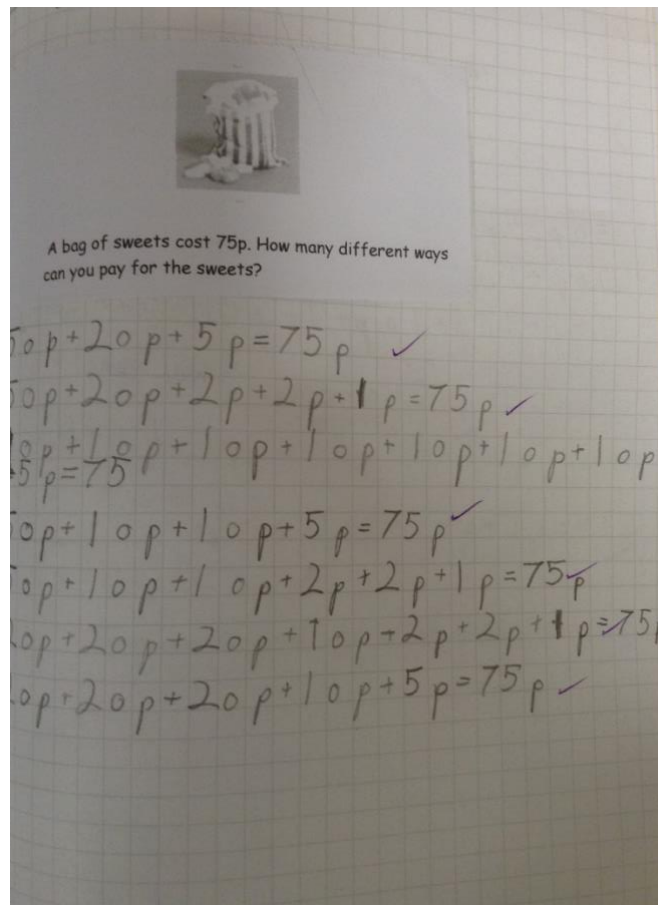 A bag of sweets cost 75p. How many different ways
can you pay for the sweets?
50p+20p+5p=75p
50p+20p+2p+2p+1p=75p
10p+10p+10p+10p+10p+10p+10p
+5p=75
50p+10p+10p+5p=75p
50p+10p+10p+2p+2p+1p=75p
20p+20p+20p+10p+2p+2p+1p=75p
20p+20p+20p+10p+5p=75p